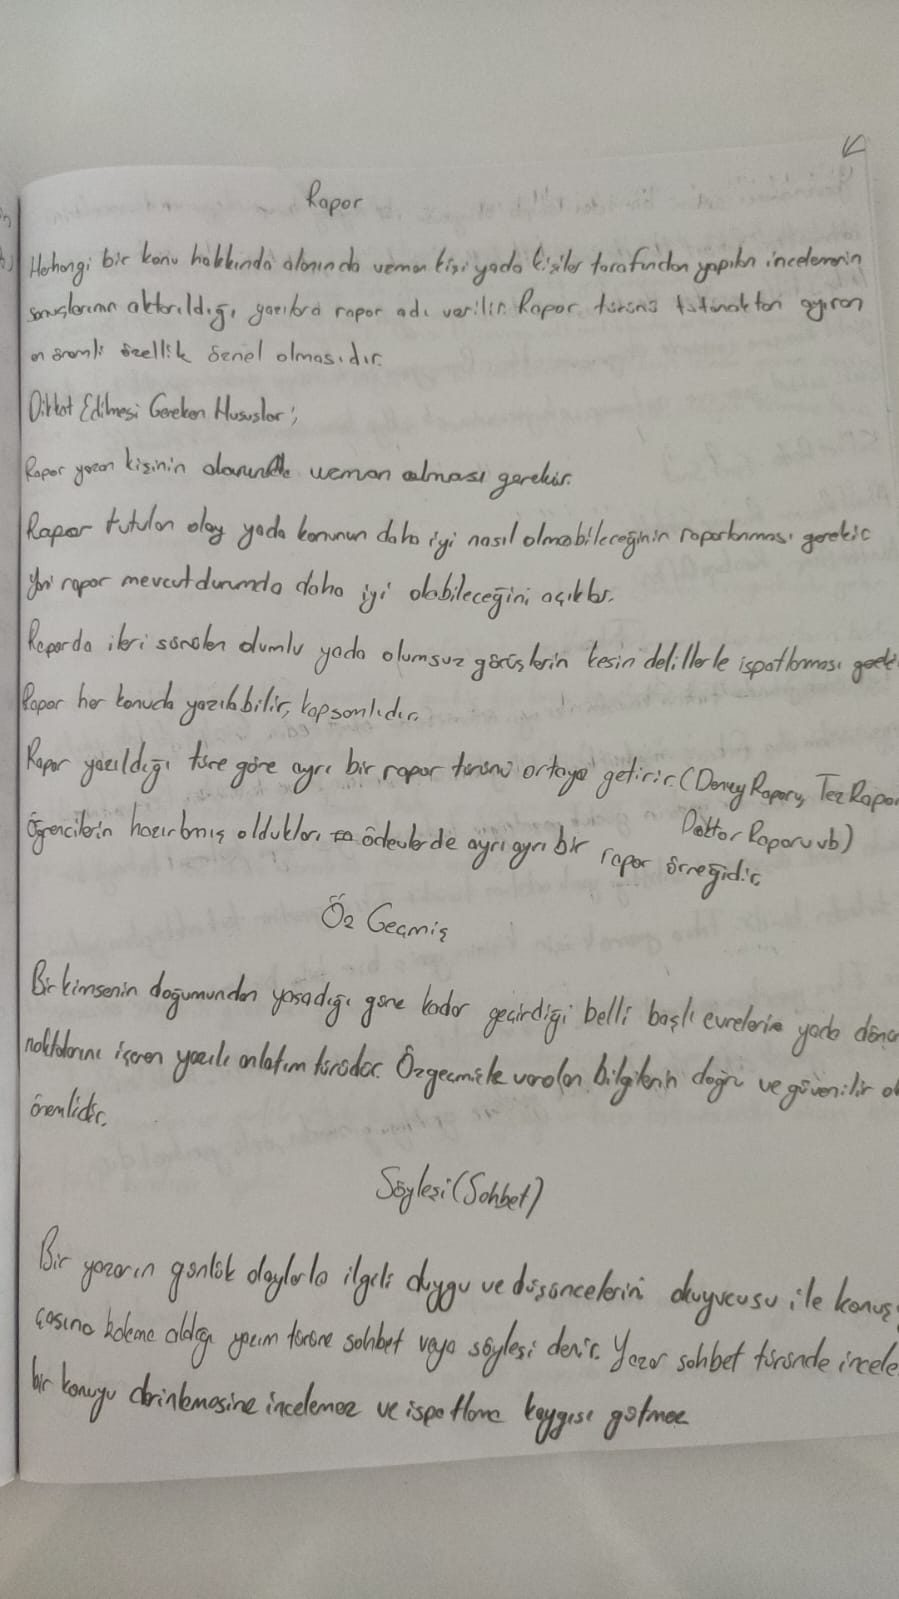 Rapor
Herhangi bir konu hakkında alanında uzman kişi yada kişiler tarafından yapılan incelemenin
sonuçlarının aktarıldığı yazılara rapor adı verilir. Rapor türünü tutanaktan ayıran
en önemli özellik öznel olmasıdır.
Dikkat Edilmesi Gereken Hususlar;
Rapor yazan kişinin alanında uzman olması gerekir.
Rapor tutulan olay yada konunun daha iyi nasıl olabileceğinin raporlanması gerekir
Yani rapor mevcut durumda daha iyi olabileceğini açıklar.
Raporda ileri sürülen olumlu yada olumsuz görüşlerin kesin delillerle ispatlanması
Rapor her konuda yazılabilir, kapsamlıdır.
Rapor yazıldığı türe göre ayrı bir rapor türünü ortaya getirir. (Deney Raporu, Tez Rapor
Doktor Raporu vb)
Öğrencilerin hazırlamış oldukları ödevlerde ayrı ayrı bir rapor örneğidir.
Öz Geçmiş
Bir kimsenin doğumundan yaşadığı güne kadar geçirdiği belli başlı evrelerin yada
noktalarını içeren yazılı anlatım türüdür. Özgeçmişte varolan bilgilerin doğru ve güvenilir
önemlidir.
Söyleşi (Sohbet)
Bir yazarın günlük olaylarla ilgili duygu ve düşüncelerini okuyucusu ile konuş
çasına kaleme aldığı yazım türüne sohbet veya söyleşi denir. Yazar sohbet türünde incele
bir konuyu derinlemesine incelemez ve ispatlama kaygısı gütmez